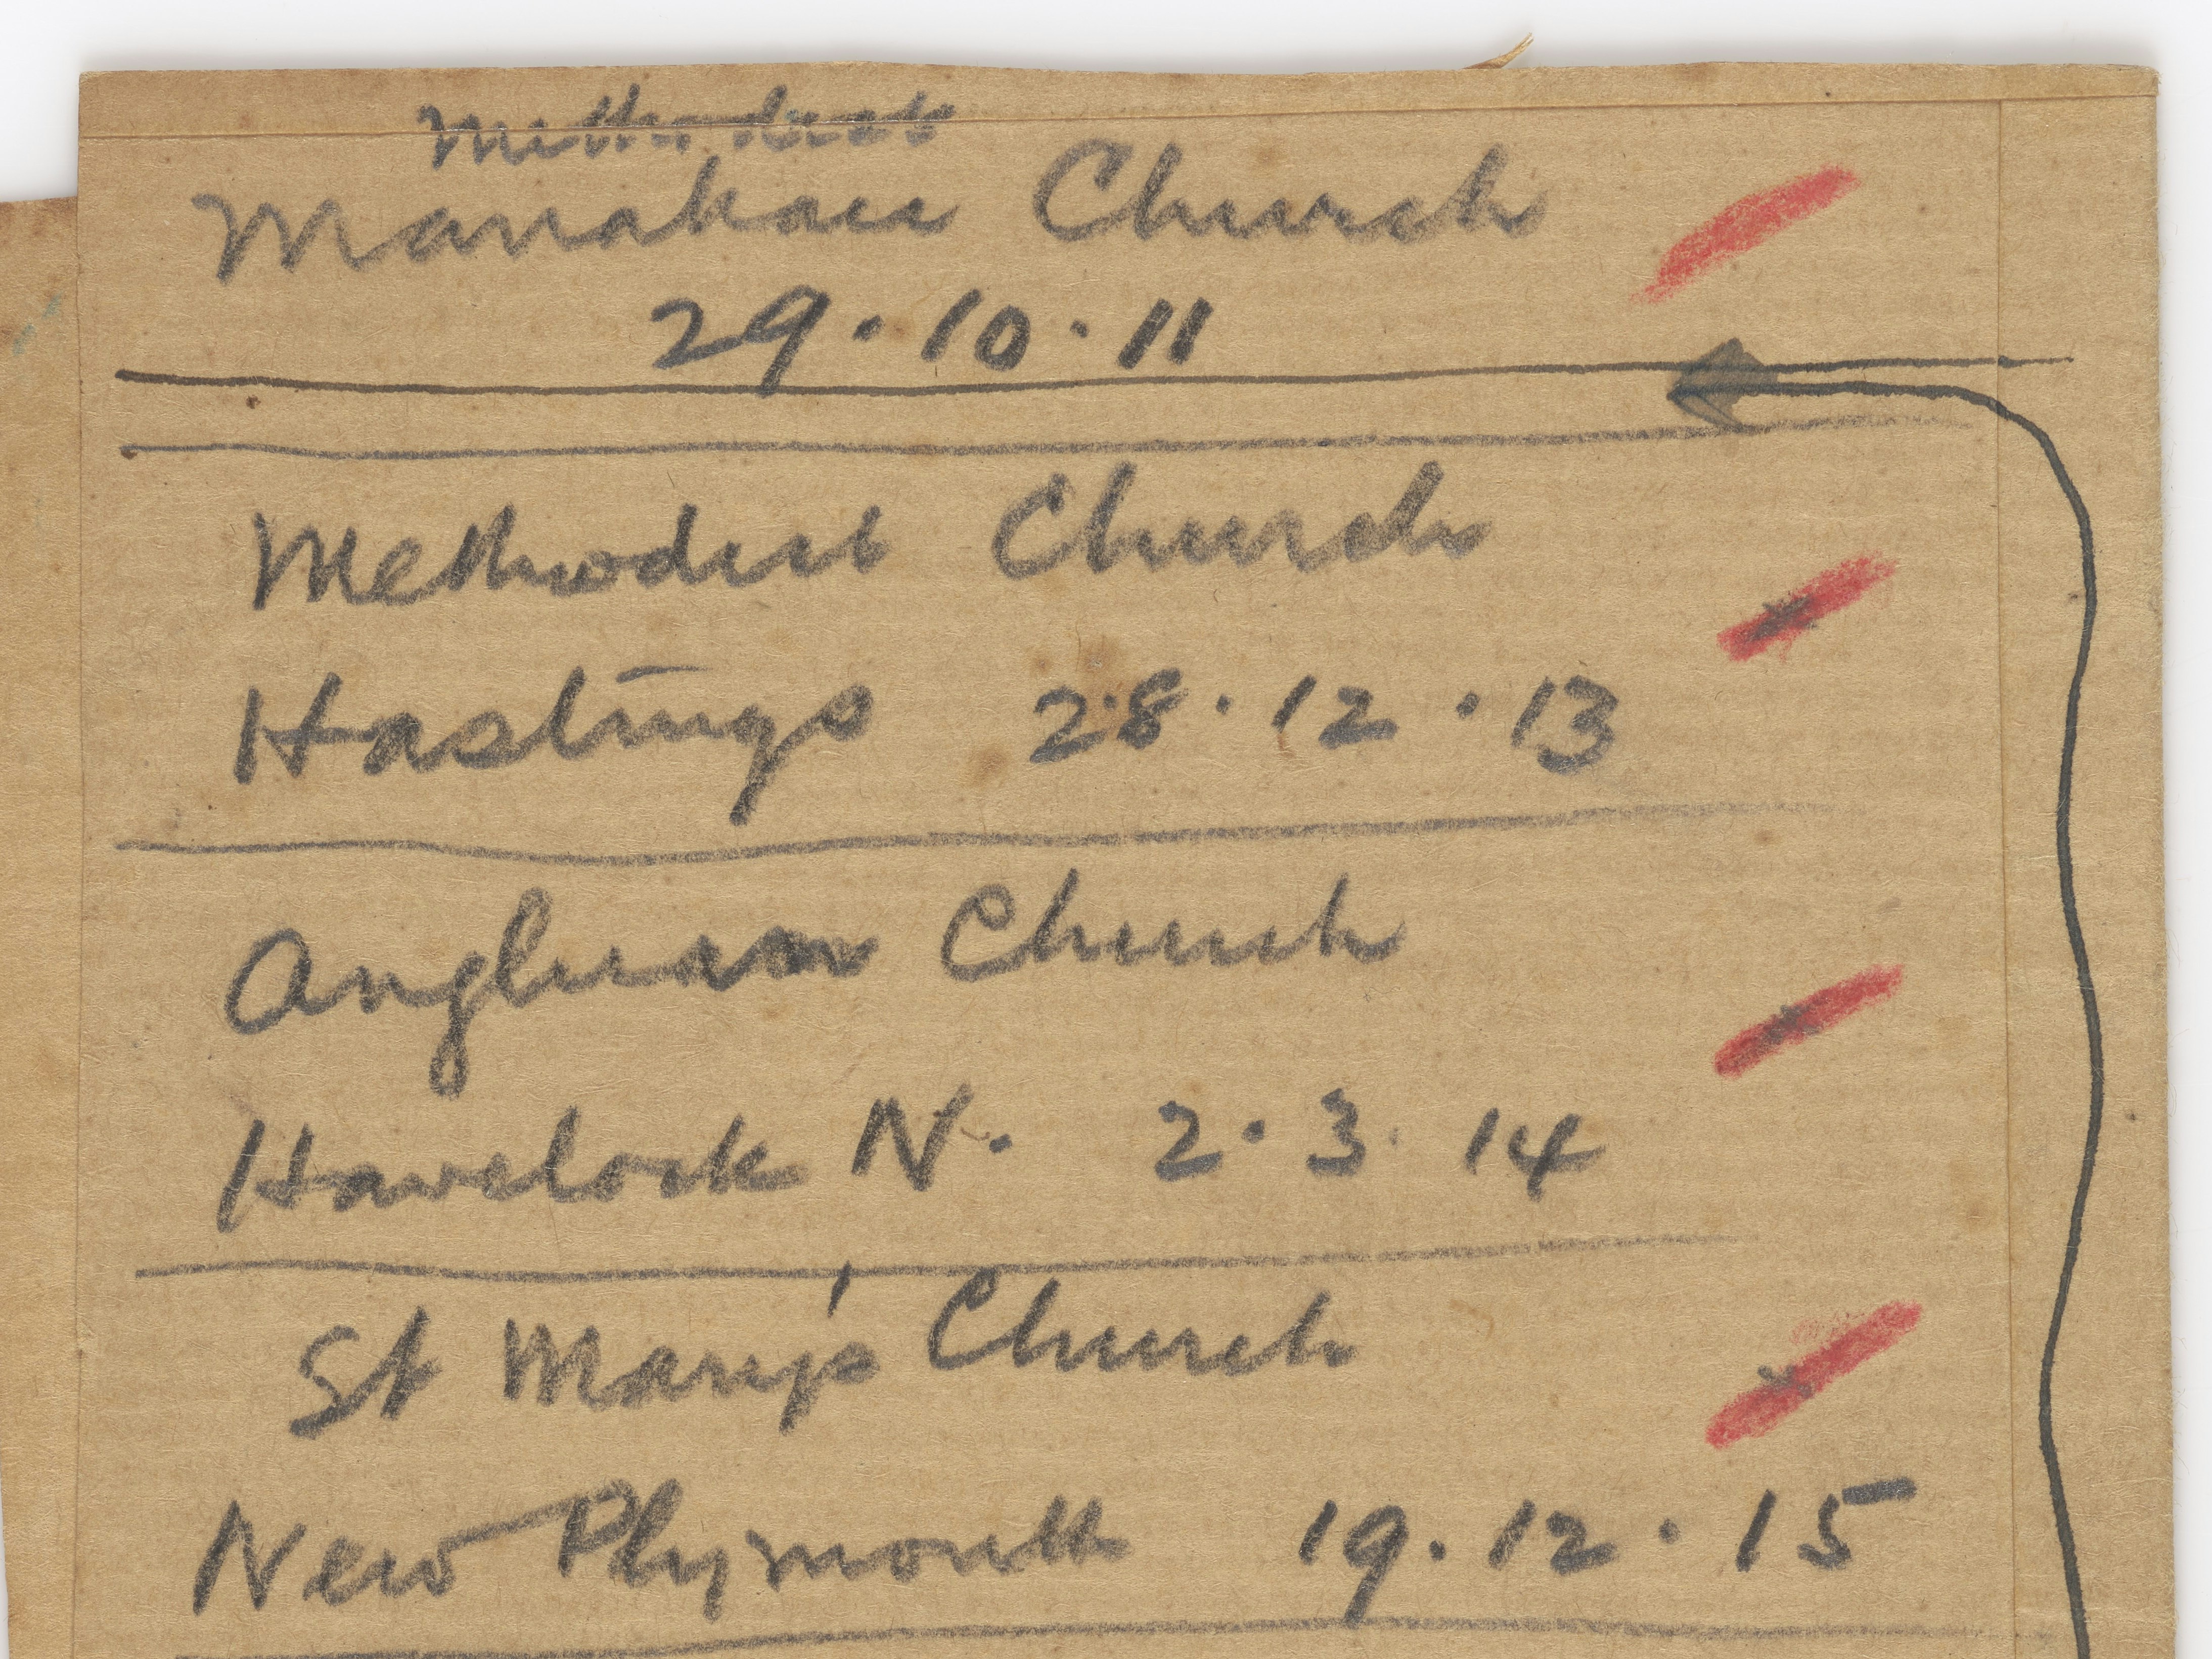 Methodist
Manakau Church
29.10.11
Methodist Church
Hastings 28.12.13
Anglican Church
Havelock N. 2.3.14
St Mary's Church
New Plymouth 19.12.15